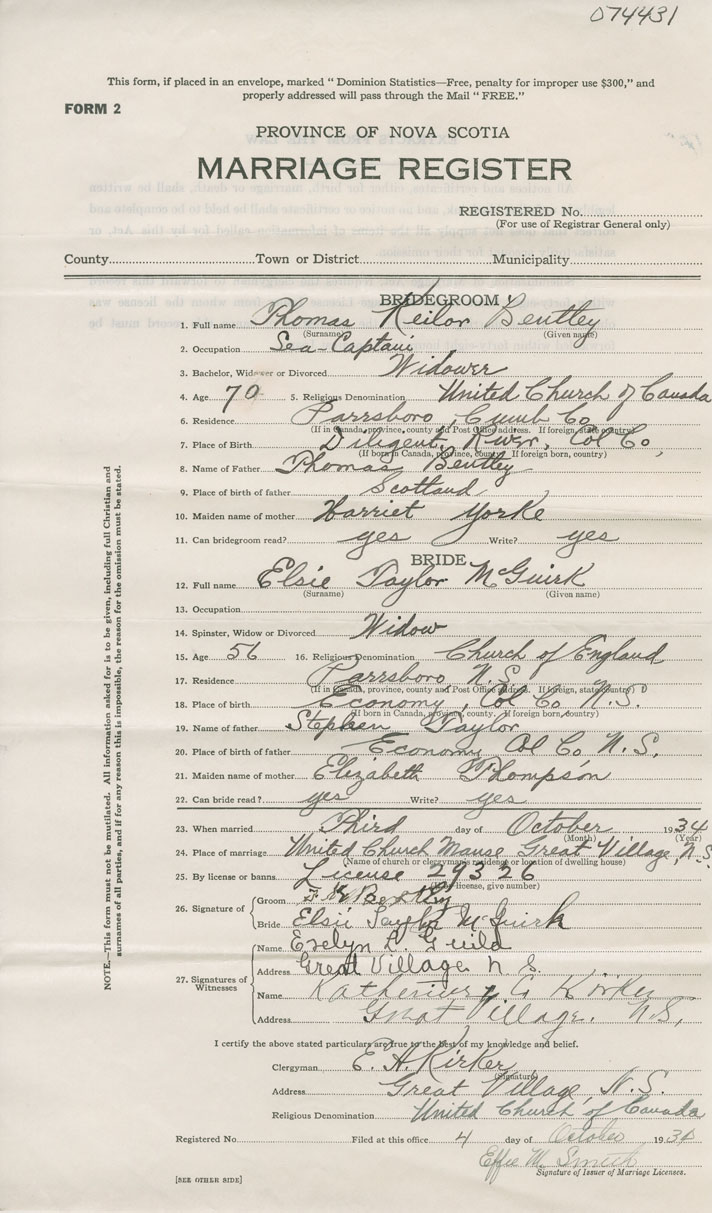 074431
This form, if placed in an envelope, marked "Dominion Statistics—Free, penalty for improper use $300," and
properly addressed will pass through the Mail "FREE."
FORM 2
PROVINCE OF NOVA SCOTIA
MARRIAGE REGISTER
REGISTERED No.
(For use of Registrar General only)
County Town or District Municipality
BRIDEGROOM
1. Full name Thomas Keilor Bentley
(Surname) (Given name)
2. Occupation Sea-Captain
3. Bachelor, Widower or Divorced Widower
4. Age 70 5. Religious Denomination United Church of Canada
6. Residence Parrsboro, Cumb Co
(If in Canada, province, county and Post Office address. If foreign, state country)
7. Place of Birth Diligent River, Col Co,
(If born in Canada, province, county. If foreign born, country)
8. Name of Father Thomas Bentley
9. Place of birth of father Scotland
10. Maiden name of mother Harriet Yorke
11. Can bridegroom read? yes Write? yes
BRIDE
12. Full name Elsie Taylor McGuirk
(Surname) (Given name)
13. Occupation
14. Spinster, Widow or Divorced Widow
15. Age 56 16. Religious Denomination Church of England
17. Residence Parrsboro N.S.
(If in Canada, province, county and Post Office address. If foreign, state country)
18. Place of birth Economy, Col Co N.S.
(If born in Canada, province, county. If foreign born, country)
19. Name of father Stephen Taylor
20. Place of birth of father Economy Col Co N.S.
21. Maiden name of mother Elizabeth Thompson
22. Can bride read? yes Write? yes
23. When married Third day of October 1934
(Month) (Year)
24. Place of marriage United Church Manse Great Village, N.S.
(Name of church or clergyman's residence or location of dwelling house)
25. By license or banns License 29326
(If license, give number)
26. Signature of Groom Bentley
Bride Elsie Taylor McGuirk
27. Signatures of Witnesses Name Evelyn L. Guild
Address Great Village N.S.
Name Katherine G Kirker
Address Great Village, N.S.
I certify the above stated particulars are true to the best of my knowledge and belief.
Clergyman E. A. Kirker
(Signature)
Address Great Village, N.S.
Religious Denomination United Church of Canada
Registered No. Filed at this office 4 day of October 1934
Effie M. Smith
Signature of Issuer of Marriage Licenses.
[SEE OTHER SIDE]
NOTE.—This form must not be mutilated. All information asked for is to be given, including full Christian and
surnames of all parties, and if for any reason this is impossible, the reason for the omission must be stated.